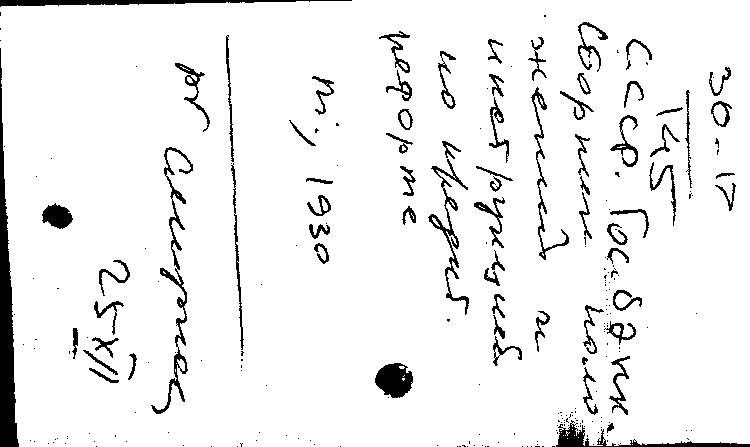 30-17
145
СССР. Гос. банк.
Сборник поло
жений и
инструкций
по кредит.
реформе
М., 1930
25-XII